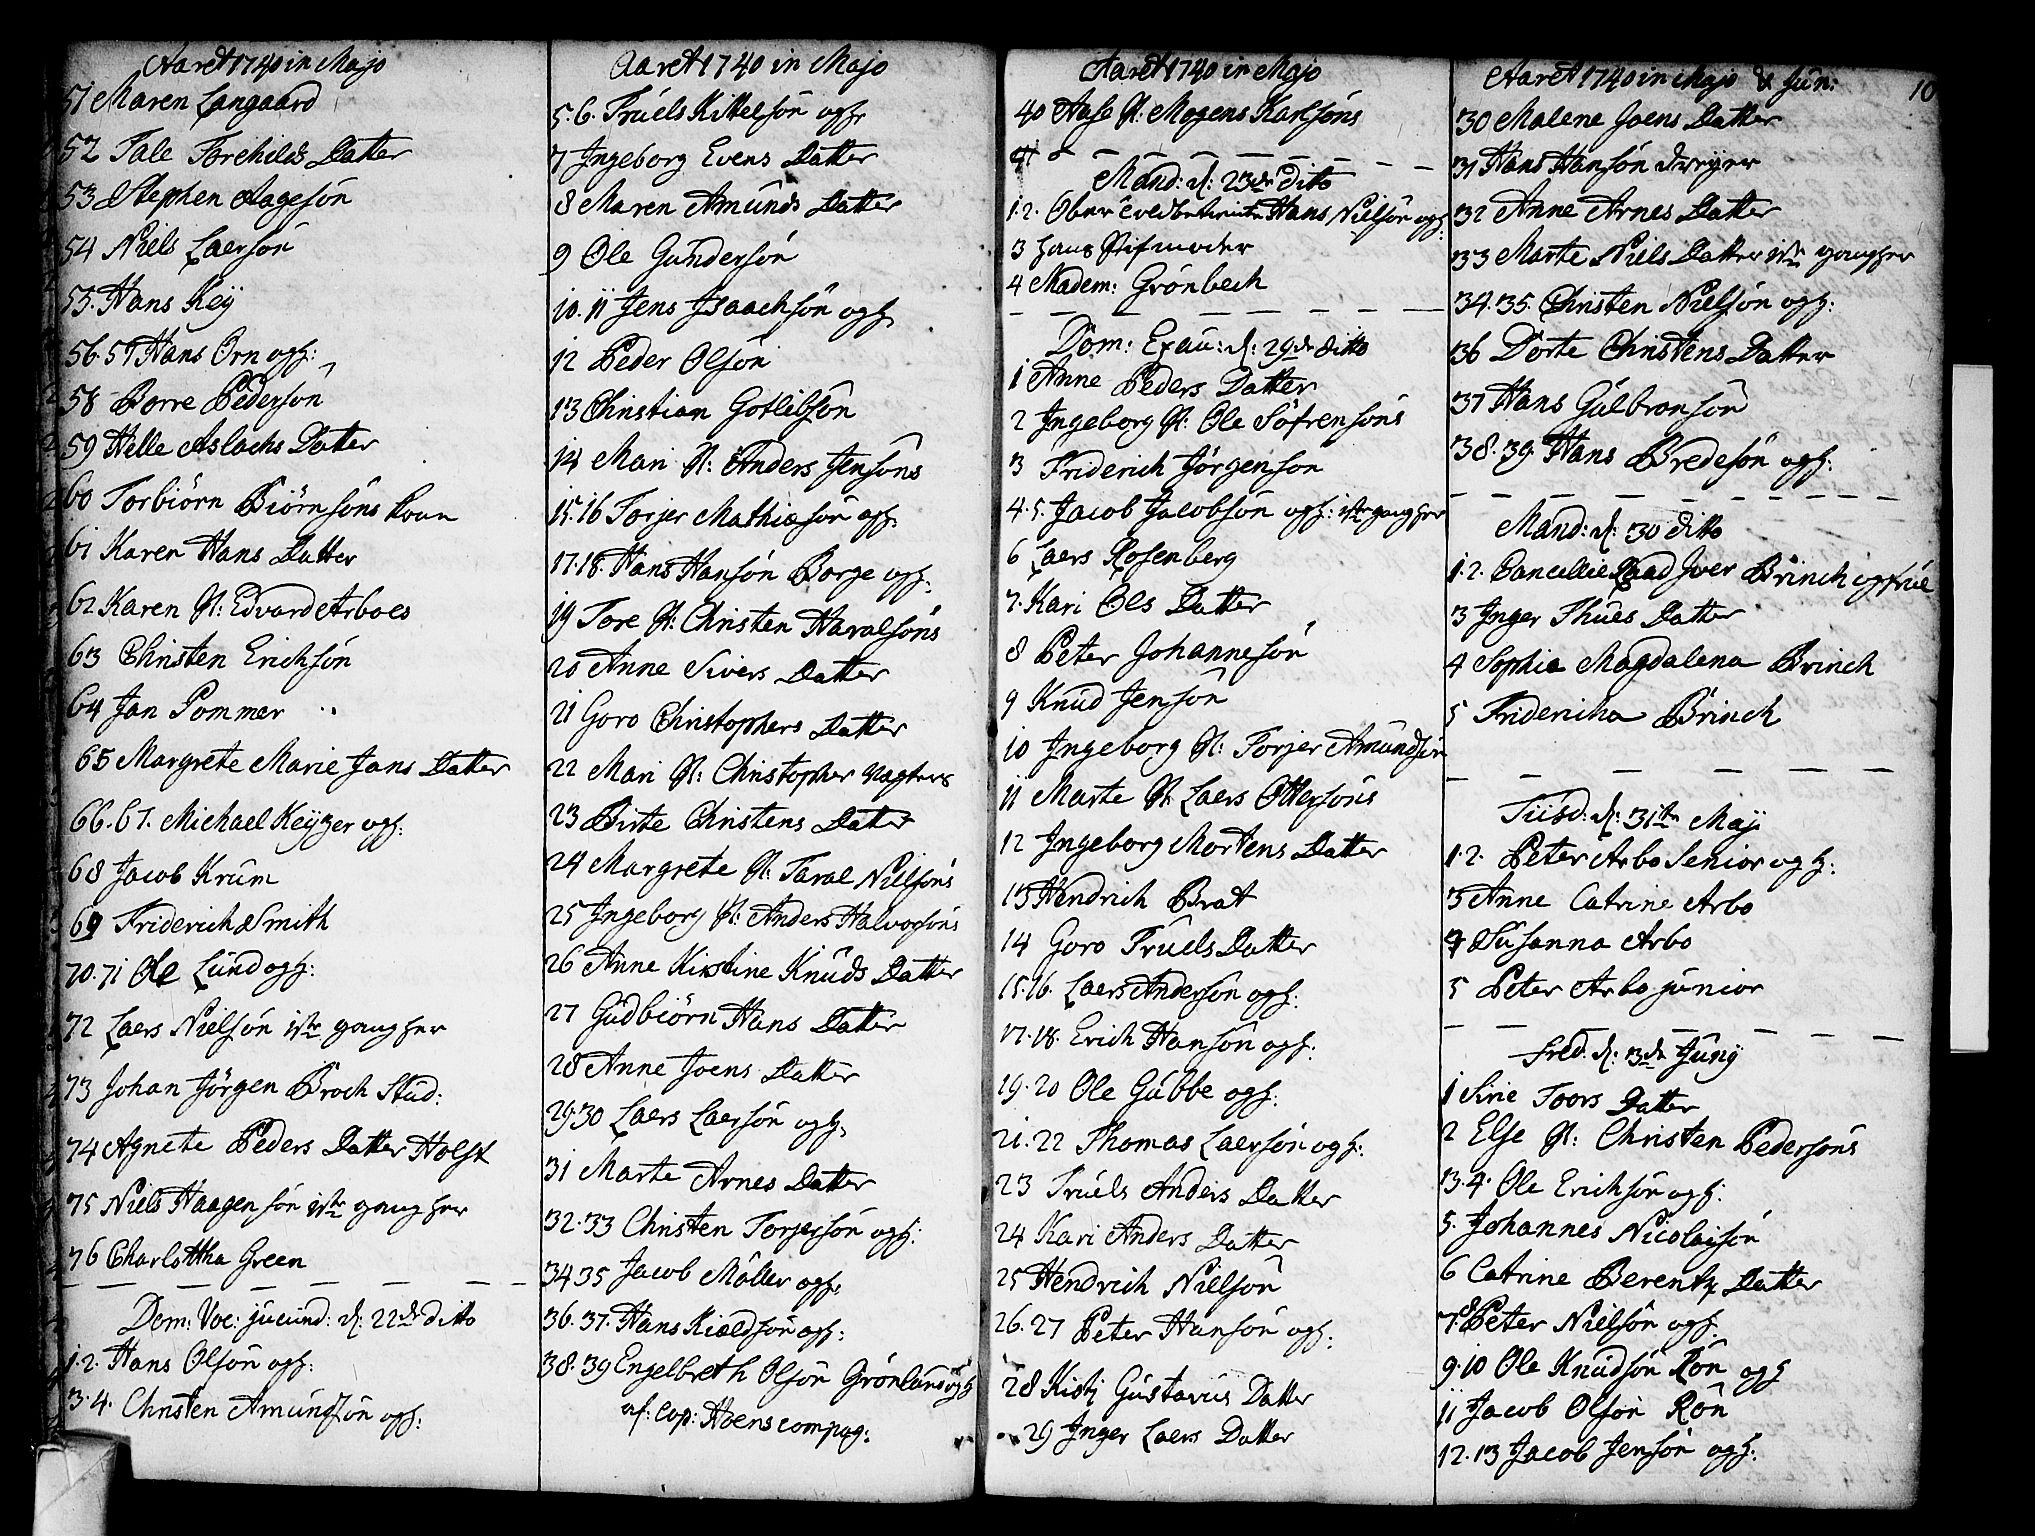 Aaret 1740 in Majo
51 Maren Langaard
52 Tale Torchilds Datter
53 Stephen Aagesón
54 Niels Laersón
55. Hans Keÿ
56. 57 Hans Orn og h:
58 Borre Pedersón
59 Helle Aslachs Datter
60 Torbiörn Biörnsóns Koun
61 Karen Hans Datter
62 Karen N: Edvard Arboes
63 Christen Erichsón
64 Jan Pommer
65 Margrete Marie Jans Datter
66. 67. Michael Keÿzer og h:
68 Jacob Krum
69 Friderich Smith
70. 71 Ole Lund og h:
72 Laers Nielsón 1ste gang her
73 Johan Jörgen Broch Stud:
74 Agnete Peders Datter Holst
75 Niels Haagensón 1ste gang her
76 Charlottha Green
Dom: Voc: jucund: d: 22de ditto
1. 2. Hans Olsón og h:
3. 4. Christen Amundsón og h:
Aaret 1740 in Majo
5. 6. Truels Kittelsón og h:
7 Ingeborg Evens Datter
8 Maren Amunds Datter
9 Ole Gundersón
10. 11 Jens Isaachsón og h:
12 Peder Olsón
13 Christian Gotlibsón
14 Mari N: Anders Jensóns
15. 16 Torjer Mathiesón og h:
17. 18. Hans Hansón Borge og h:
19 Tore N: Christen Haralsóns
20 Anne Sivers Datter
21 Goro Christophers Datter
22 Mari N: Christopher Vagters
23 Birte Christens Datter
24 Margrete N: Taral Nielsóns
25 Ingeborg N: Anders Halvorsóns
26 Anne Kirstine Knuds Datter
27 Gudbiörn Hans Datter
28 Anne Joens Datter
29. 30 Laers Laersón og h:
31 Marte Arnes Datter
32. 33 Christen Torjersón og h:
34 35 Jacob Möller og h:
36. 37. Hans Kieldsón og h:
38. 39 Engelbreth Olsón Grónland og h
af: Cap: Hoens compag:
Aaret 1740 in Majo
40 Aase N: Mogens Karlsóns
Mand: d: 23de dito
1. 2. Hans Nielsón og h:
3 hans Stifmoder
4 Madem: Grónbech
Dom: Exau: d: 29de ditto
1 Anne Peders Datter
2 Ingeborg N: Ole Sófrensóns
3 Friderich Jörgenson
4. 5. Jacob Jacobsón og h: 1ste gang her
6 Laers Rosenberg
7. Kari Ols Datter
8 Peter Johannesón
9 Knud Jensón
10 Ingeborg N: Torjer Amundsón
11 Marte N: Laers Ottersóns
12 Ingeborg Mortens Datter
13 Hendrich Brat
14 Goro Truels Datter
15. 16. Laers Andersón og h:
17. 18. Erich Hansón og h:
19. 20 Ole Gubbe og h:
21. 22 Thomas Laersón og h:
23 Truels Anders Datter
24 Kari Anders Datter
25 Hendrich Nielsón
26. 27 Peter Hansón og h:
28 Kisti Gustavus Datter
29 Inger Laers Datter
Aaret 1740 in Majo & Jun: 10
30 Malene Joens Datter
31 Hans Hansón dreÿer
32 Anne Arnes Datter
33 Marte Niels Datter 1ste gang her
34. 35. Christen Nielsón og h:
36 Dorte Christens Datter
37 Hans Gulbransón
38. 39. Hans Bredesón og h:
Mand: d: 30 ditto
1. 2. Cancellie Raad Iver Brinch og frue
3 Inger Thues Datter
4 Sophia Magdalena Brinch
5 Friderica Brinch
Tiisd: d: 31te Maji
1. 2. Peter Arbo Senior og h:
3 Anne Catrine Arbo
4 Susanna Arbo
5 Peter Arbo junior
Fred: d: 3de Junÿ
1 Sirie Toors Datter
2 Else N: Christen Pedersóns
3. 4. Ole Erichsón og h:
5. Johannes Nicolaisón
6 Catrine Berentz Datter
7. 8. Peter Nielsón og h:
9. 10 Ole Knudsón Rón og h
11 Jacob Olsón Rón
12. 13 Jacob Jensón og h: